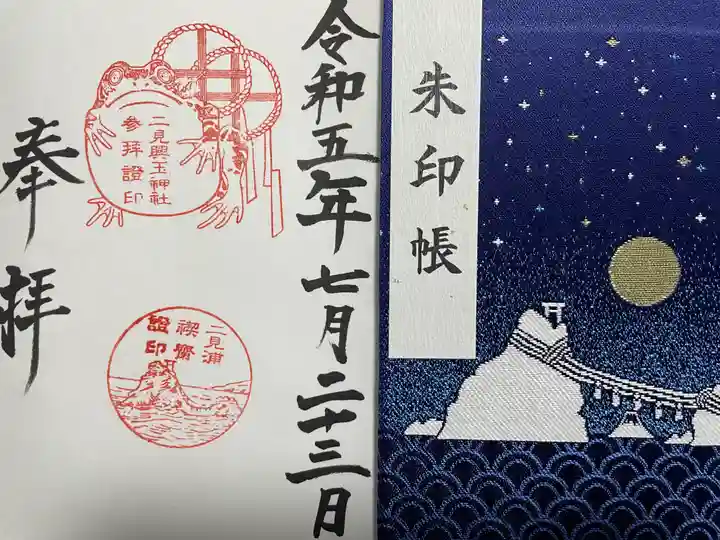 令和五年七月二十三日
二見興玉神社
参拝證印
二見浦
禊齋
證印
奉拝
朱印帳